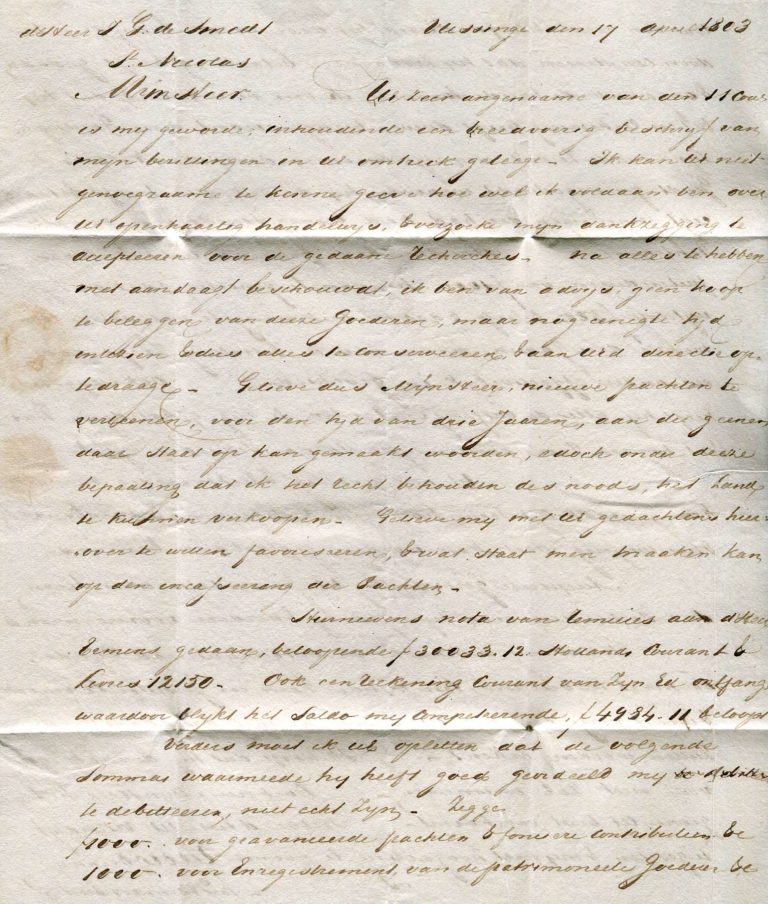 de Heer J G. de Smedt Vlissinge den 17 april 1803
St. Nicolas
Mijn Heer. UE zeer angenaame van den 11 Cour
is my geworde, inhoudende een breedvoerig beschryf van
mijn bezittingen in UE omtreck gelege - Ik kan UE niet
genoegzaame te kenne geeve hoe wel ik voldaan ben over
UE openhaartig handelwys, & verzoeke mijn dankzegging te
accepteeren voor de gedaane Recherches - na alles te hebben
met aandagt beschouwdt, ik ben van advys, geen koop
te beleggen van deeze Goederen, maar nog eenigte tyd
intezien & dies alles te Conserveeren, & aan UEd directie op
te draage - Gelieve dus Mijn Heer, nieuwe pachten te
verleenen, voor den tyd van drie Jaaren, aan die geenen
daar staat op kan gemaakt woorden, edoch onder deeze
bepaaling dat ik het recht behouden des noods, het Land
te kunnen verkoopen - Gelieve my met UE gedachtens hier
over te willen favoriseeren, & wat staat men maaken kan
op den incasseering der Pachten -
Hiernevens nota van remises aan d'Heer
gedaan, beloopende ƒ30033.12 Hollands Courant &
Livres 12150 - Ook een Rekening Courant van Zyn Ed ontfang
waardoor blykt het Saldo my Competeerende, ƒ4984.11 beloopt
Verders moet ik UE opletten dat de volgende
Sommas waarmeede hy heeft goed geoordeeld my
te debiteeren, niet echt Zyn - Zegge
ƒ1000 - voor geavanceerde pachten & fonciere Contributien &c
1000 - voor Enregistrement van de patrimoneele Goederen &c